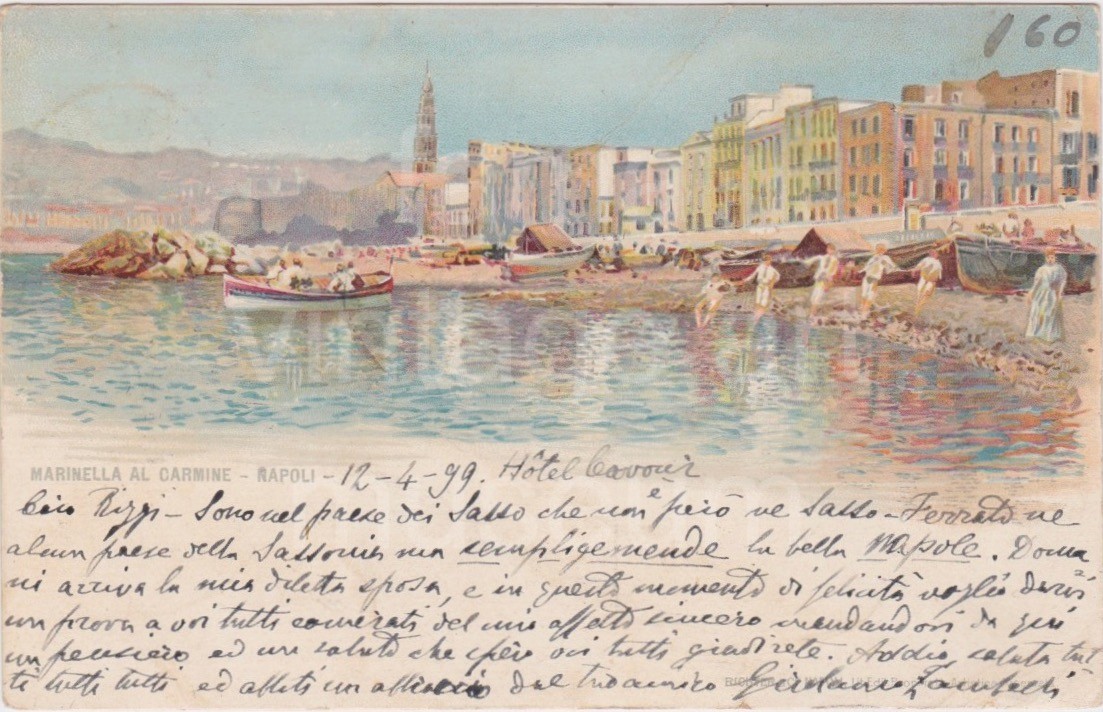 160
MARINELLA AL CARMINE - NAPOLI - 12-4-99. Hôtel Cavour
Rizzi - Sono nel paese dei Sasso che non è però ne Sasso-Ferrato ne
alcun paese della Sassonia ma sempligemende la bella Napole. Doma
ni arriva la mia diletta sposa, e in questo momento di felicità voglio darvi
un prova a voi tutti del mio affetto sincero mandandovi da qui
un pensiero ed un saluto che spero voi tutti gradirete. Addio, saluta tut
ti tutti tutti ed abbiti un abbraccio dal tuo amico